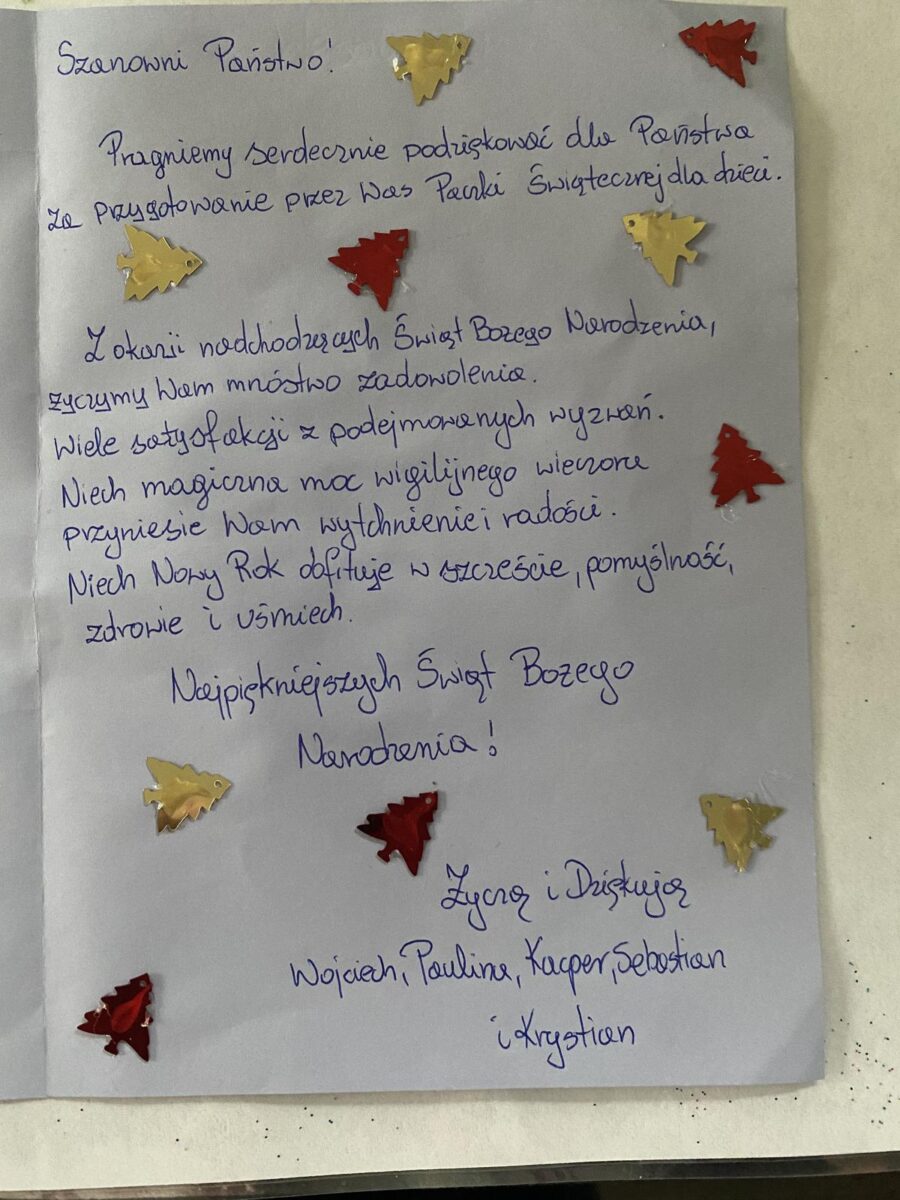 Szanowni Państwo!
Pragniemy serdecznie podziękować dla Państwa
za przygotowanie przez Was Paczki Świątecznej dla dzieci.
Z okazji nadchodzących Świąt Bożego Narodzenia,
życzymy Wam mnóstwo zadowolenia.
Wiele satysfakcji z podejmowanych wyzwań.
Niech magiczna moc wigilijnego wieczora
przyniesie Wam wytchnienie i radości.
Niech Nowy Rok obfituje w szczęście, pomyślność,
zdrowie i uśmiech.
Najpiękniejszych Świąt Bożego
Narodzenia!
Życzą i Dziękują
Wojciech, Paulina, Kacper, Sebastian
i Krystian